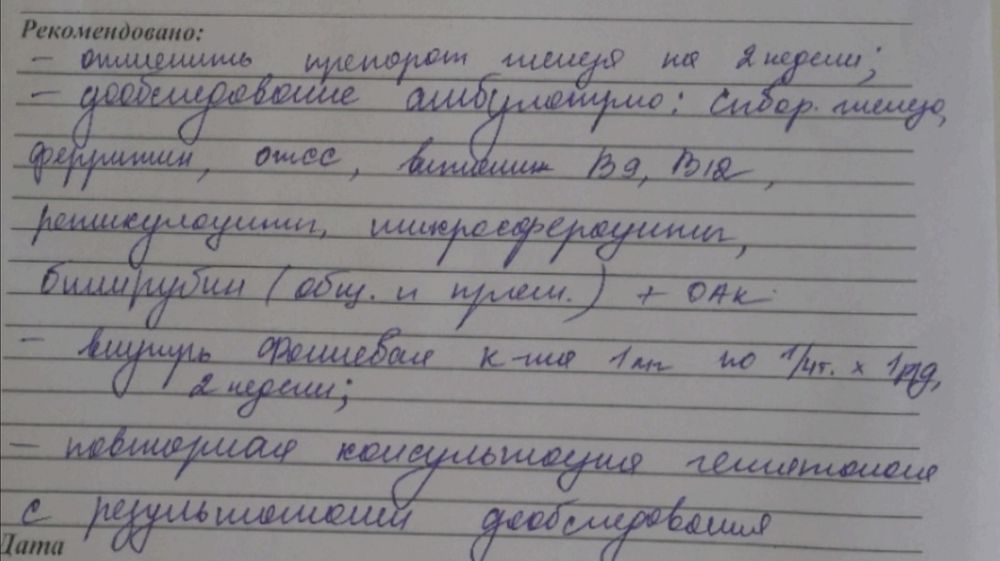 Рекомендовано:
- отменить препарат железа на 2 недели;
- дообследование амбулаторно: сывор. железо,
ферритин, ОЖСС, витамин В9, В12,
ретикулоциты, микросфероциты,
билирубин (общ. и прям.) + ОАК
- внутрь фолиевая к-та 1мг по 1/4т. х 1р/д,
2 недели;
- повторная консультация гематолога
с результатами дообследования
Дата